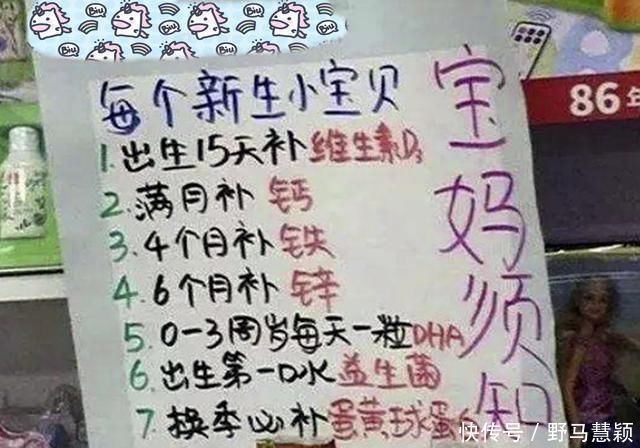 每个新生小宝贝
1.出生15天补维生素D3
2.满月补钙
3.4个月补铁
4.6个月补锌
5.0-3周岁每天一粒DHA
6.出生第一口水益生菌
7.换季必补蛋黄球蛋
宝妈须知
86年
Biu
Biu
Biu
Biu
Biu
快传号/野马慧颖